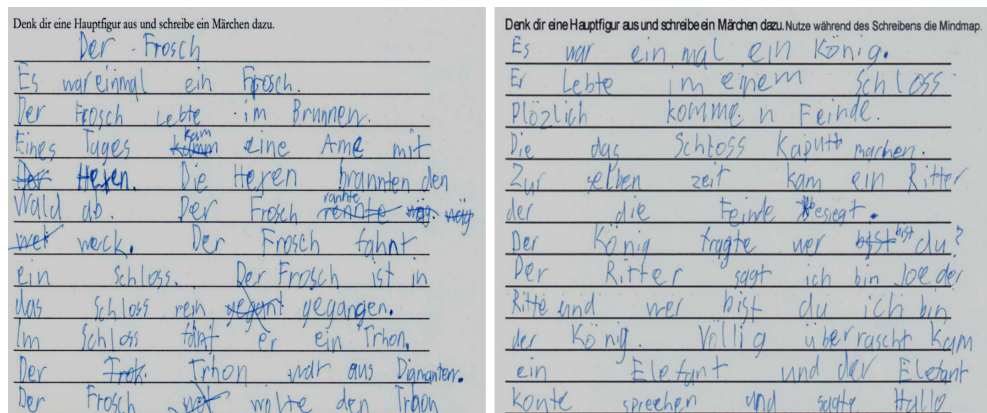 Denk dir eine Hauptfigur aus und schreibe ein Märchen dazu.
Der Frosch
Es war einmal ein Frosch.
Der Frosch Lebte im Brunnen.
Eines Tages kam eine Ame mit
Hexen. Die Hexen brannten den
Wald ab. Der Frosch rannte
weck. Der Frosch fahnt
ein Schloss. Der Frosch ist in
das Schloss rein gegangen.
Im Schloss fant er ein Trhon.
Der Trhon war aus Diamanten.
Der Frosch wolte den Trhon
Denk dir eine Hauptfigur aus und schreibe ein Märchen dazu. Nutze während des Schreibens die Mindmap.
Es war ein mal ein König.
Er Lebte im einem Schloss
Plözlich komme n Feinde.
Die das Schloss Kaputt machen.
Zur selben zeit kam ein Ritter
der die Feinde besiegt.
Der König fragte wer bist du?
Der Ritter sagt ich bin Joe der
Ritte und wer bist du ich bin
der König. Völlig überrascht Kam
ein Elefant und der Elefant
konte sprechen und sagte Hallo